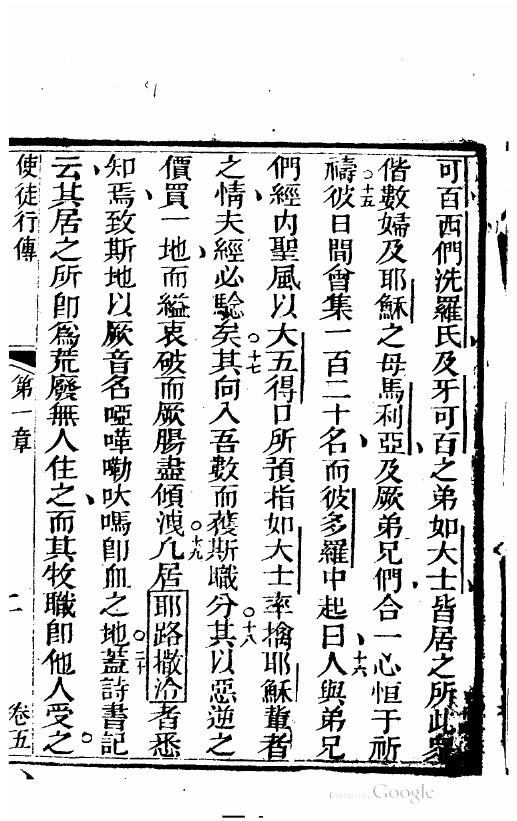 可百西們洗羅氏及牙可百之弟如大士皆居之所此眾
偕數婦及耶穌之母馬利亞及厥弟兄們合一心恒于祈
禱○十五彼日間曾集一百二十名而彼多羅中起曰○十六人與弟兄
們經內聖風以大五得口所預指如大士率擒耶穌輩者
之情夫經必騐矣○十七其向入吾數而獲斯職分○十八其以惡逆之
價買一地而縊衷破而厥腸盡傾洩○十九凢居耶路撒冾者悉
知焉致斯地以厥音名啞嘩嘞吠嗎卽血之地○二十蓋詩書記
云其居之所卽為荒廢無人住之而其牧職卽他人受之○
使徒行傳 第一章 二 卷五
Digitized by Google